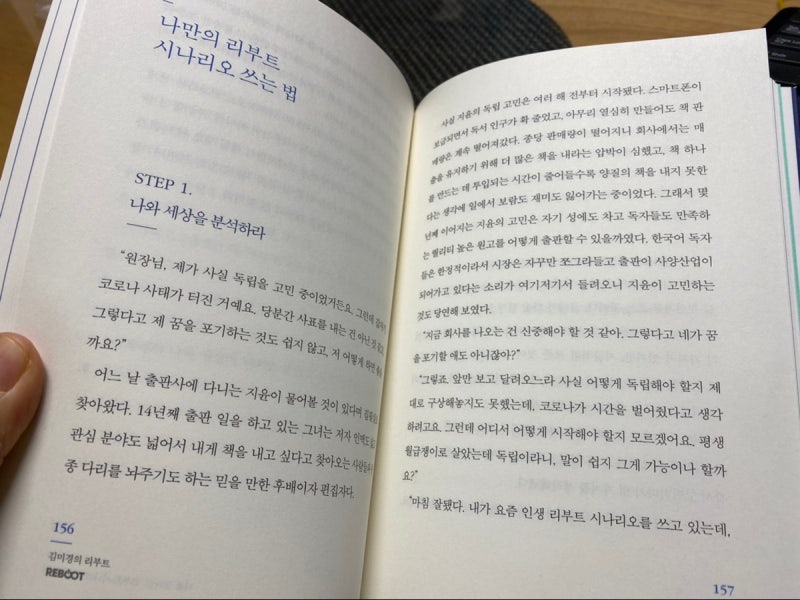 나만의 리부트
시나리오 쓰는 법
STEP 1.
나와 세상을 분석하라
“원장님, 제가 사실 독립을 고민 중이었거든요. 그런데
코로나 사태가 터진 거예요. 당분간 사표를 내는 건 아닌 것
그렇다고 제 꿈을 포기하는 것도 쉽지 않고, 저 어떻게 하면
까요?”
어느 날 출판사에 다니는 지윤이 물어볼 것이 있다며
찾아왔다. 14년째 출판 일을 하고 있는 그녀는 저자 인맥도
관심 분야도 넓어서 내게 책을 내고 싶다고 찾아오는 사람들
종 다리를 놔주기도 하는 믿을 만한 후배이자 편집자다.
156
김미경의 리부트
REBOOT
사실 지윤의 독립 고민은 여러 해 전부터 시작됐다. 스마트폰이
보급되면서 독서 인구가 확 줄었고, 아무리 열심히 만들어도 책 판
매량은 계속 떨어져갔다. 종당 판매량이 떨어지니 회사에서는 매
출을 유지하기 위해 더 많은 책을 내라는 압박이 심했고, 책 하나
를 만드는 데 투입되는 시간이 줄어들수록 양질의 책을 내지 못한
다는 생각에 일에서 보람도 재미도 잃어가는 중이었다. 그래서 몇
년째 이어지는 지윤의 고민은 자기 성에도 차고 독자들도 만족하
는 퀄리티 높은 원고를 어떻게 출판할 수 있을까였다. 한국어 독자
들은 한정적이라서 시장은 자꾸만 쪼그라들고 출판이 사양산업이
되어가고 있다는 소리가 여기저기서 들려오니 지윤이 고민하는
것도 당연해 보였다.
“지금 회사를 나오는 건 신중해야 할 것 같아. 그렇다고 네가 꿈
을 포기할 애도 아니잖아?”
“그렇죠. 앞만 보고 달려오느라 사실 어떻게 독립해야 할지 제
대로 구상해놓지도 못했는데, 코로나가 시간을 벌어줬다고 생각
하려고요. 그런데 어디서 어떻게 시작해야 할지 모르겠어요. 평생
월급쟁이로 살았는데 독립이라니, 말이 쉽지 그게 가능이나 할까
요?”
“마침 잘됐다. 내가 요즘 인생 리부트 시나리오를 쓰고 있는데,
157